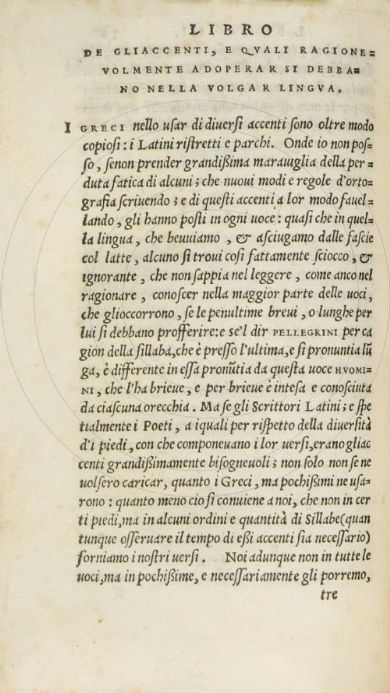 LIBRO
DE GLIACCENTI, E QVALI RAGIONE-
VOLMENTE ADOPERAR SI DEBBA-
NO NELLA VOLGAR LINGVA.
I GRECI nello uſar di diuerſi accenti ſono oltre modo
copioſi: i Latini riſtretti e parchi. Onde io non poſ-
ſo, ſenon prender grandißima marauiglia della per-
duta fatica di alcuni; che nuoui modi e regole d'orto-
grafia ſcriuendo; e di queſti accenti a lor modo fauel-
lando, gli hanno poſti in ogni uoce: quaſi che in quel-
la lingua, che beuuiamo, & aſciugamo dalle faſcie
col latte, alcuno ſi troui coſi fattamente ſciocco, &
ignorante, che non ſappia nel leggere, come anco nel
ragionare, conoſcer nella maggior parte delle uoci,
che glioccorrono, ſe le penultime breui, o lunghe per
lui ſi debbano profferire: e ſe'l dir PELLEGRINI per ca
gion della ſillaba, che è preſſo l'ultima, e ſi pronuntia lũ
ga, è differente in eſſa pronũtia da queſta uoce HVOMI-
NI, che l'ha brieue, e per brieue è inteſa e conoſciuta
da ciaſcuna orecchia. Ma ſe gli Scrittori Latini; e ſpe
tialmente i Poeti, a iquali per riſpetto della diuerſità
d'i piedi, con che componeuano i lor uerſi, erano gliac
centi grandißimamente biſogneuoli; non ſolo non ſe ne
uolſero caricar, quanto i Greci, ma pochißimi ne uſa-
rono: quanto meno cio ſi conuiene a noi, che non in cer
ti piedi, ma in alcuni ordini e quantità di Sillabe (quan
tunque oſſeruare il tempo di eßi accenti ſia neceſſario)
forniamo i noſtri uerſi. Noi adunque non in tutte le
uoci, ma in pochißime, e neceſſariamente gli porremo,
tre